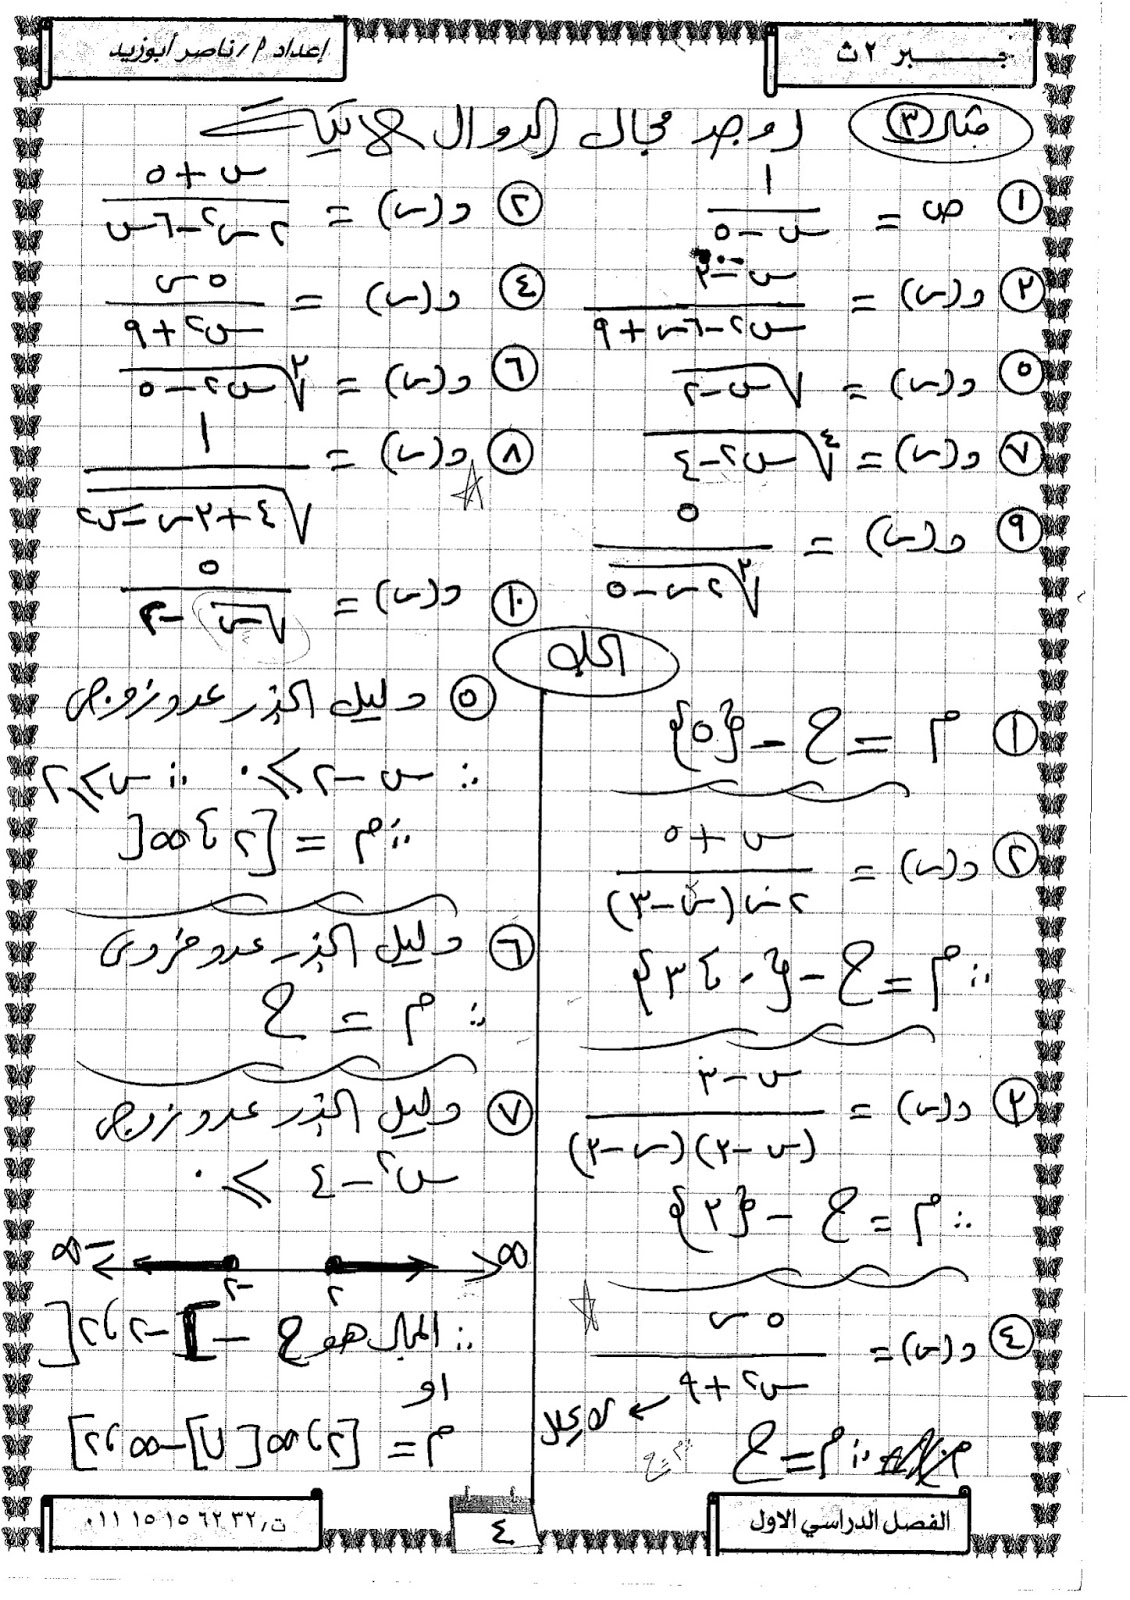 جبر ٢ث
إعداد م/ناصر أبوزيد
مثال (٣) أوجد مجال الدوال الآتية
① ص = ١ / (س - ٥)
② د(س) = (س + ٥) / (٢س² - ٦س)
③ د(س) = (س - ٣) / (س² - ٦س + ٩)
④ د(س) = ٥س / (س² + ٩)
⑤ د(س) = √(س - ٢)
⑥ د(س) = ∛(س² - ٥)
⑦ د(س) = ∜(س² - ٤)
⑧ د(س) = ١ / √(٤ + ٣س - س²)
⑨ د(س) = ٥ / ∛(٢س - ٥)
⑩ د(س) = ٥ / (√س - ٣)
الحل
① م = ح - {٥}
② د(س) = (س + ٥) / ٢س(س - ٣)
∴ م = ح - {٠، ٣}
③ د(س) = (س - ٣) / (س - ٣)(س - ٣)
∴ م = ح - {٣}
④ د(س) = ٥س / (س² + ٩) ← لا يحلل
∴ م = ح
⑤ دليل الجذر عدد زوجى
∴ س - ٢ ≥ ٠ ∴ س ≥ ٢
∴ م = [٢، ∞[
⑥ دليل الجذر عدد فردى
∴ م = ح
⑦ دليل الجذر عدد زوجى
س² - ٤ ≥ ٠
-∞ -٢ ٢ ∞
∴ المجال هو ح - ]-٢، ٢[
او
م = [٢، ∞[ U ]-∞، -٢]
الفصل الدراسي الاول
٤
ت/ ٠١١١٥١٥٦٢٣٢